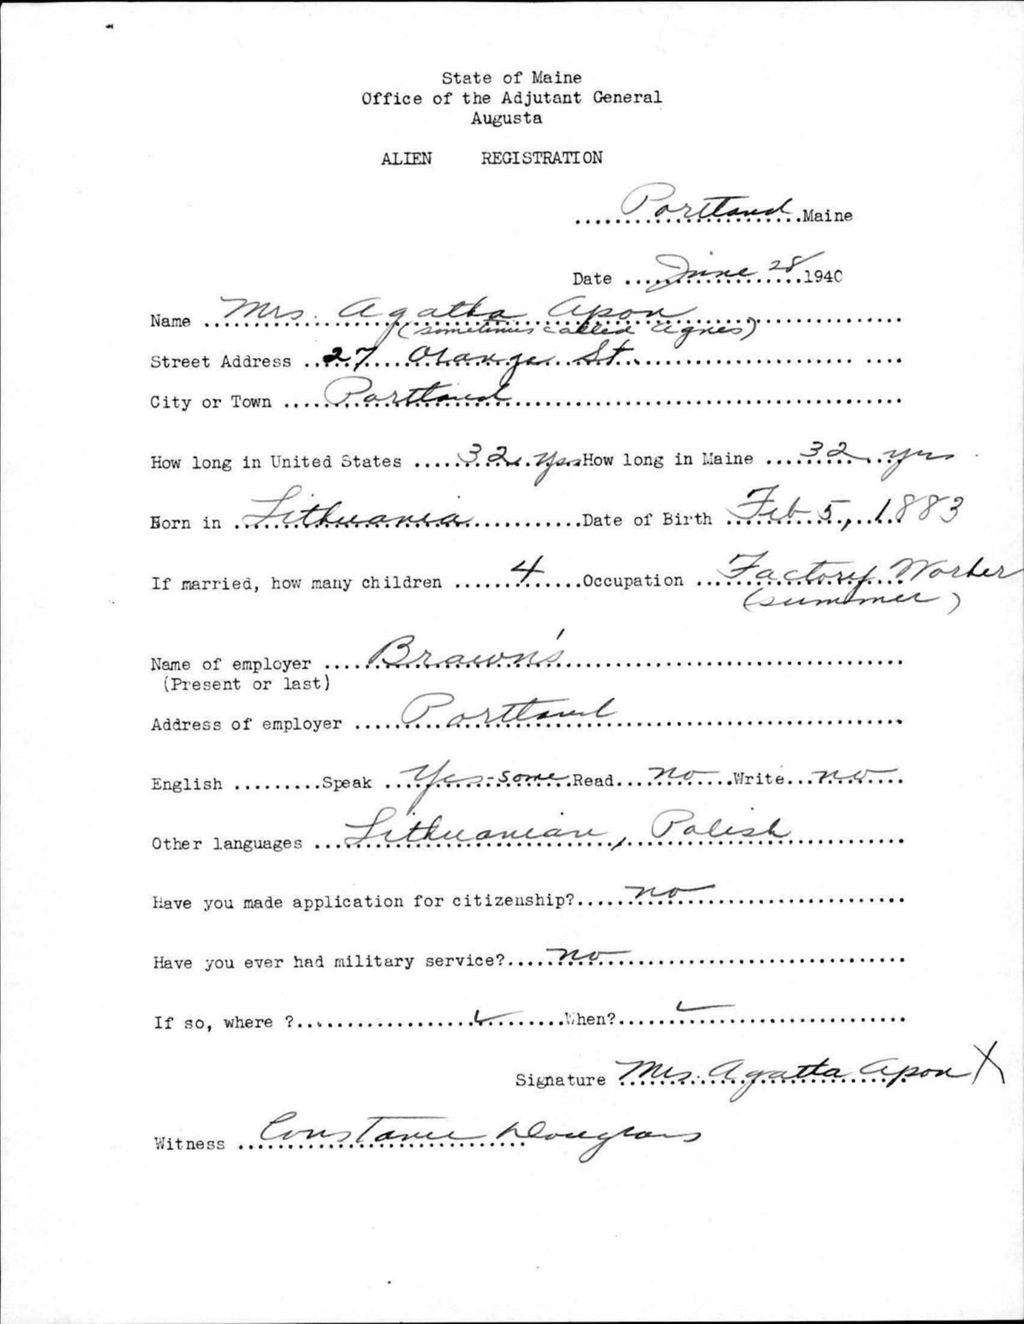 State of Maine
Office of the Adjutant General
Augusta
ALIEN REGISTRATION
Portland Maine
Date June 28 1940
Name Mrs. Agatha Apon
(sometimes called Agnes)
Street Address 27 Orange St.
City or Town Portland
How long in United States 32 yrs How long in Maine 32 yrs
Born in Lithuania Date of Birth Feb 5, 1883
If married, how many children 4 Occupation Factory Worker
(summer)
Name of employer Brown's
(Present or last)
Address of employer Portland
English Speak Yes-some Read no Write no
Other languages Lithuanian, Polish
Have you made application for citizenship? no
Have you ever had military service? no
If so, where ? ✓ When? ✓
Signature Mrs. Agatha Apon X
Witness Constance Douglass